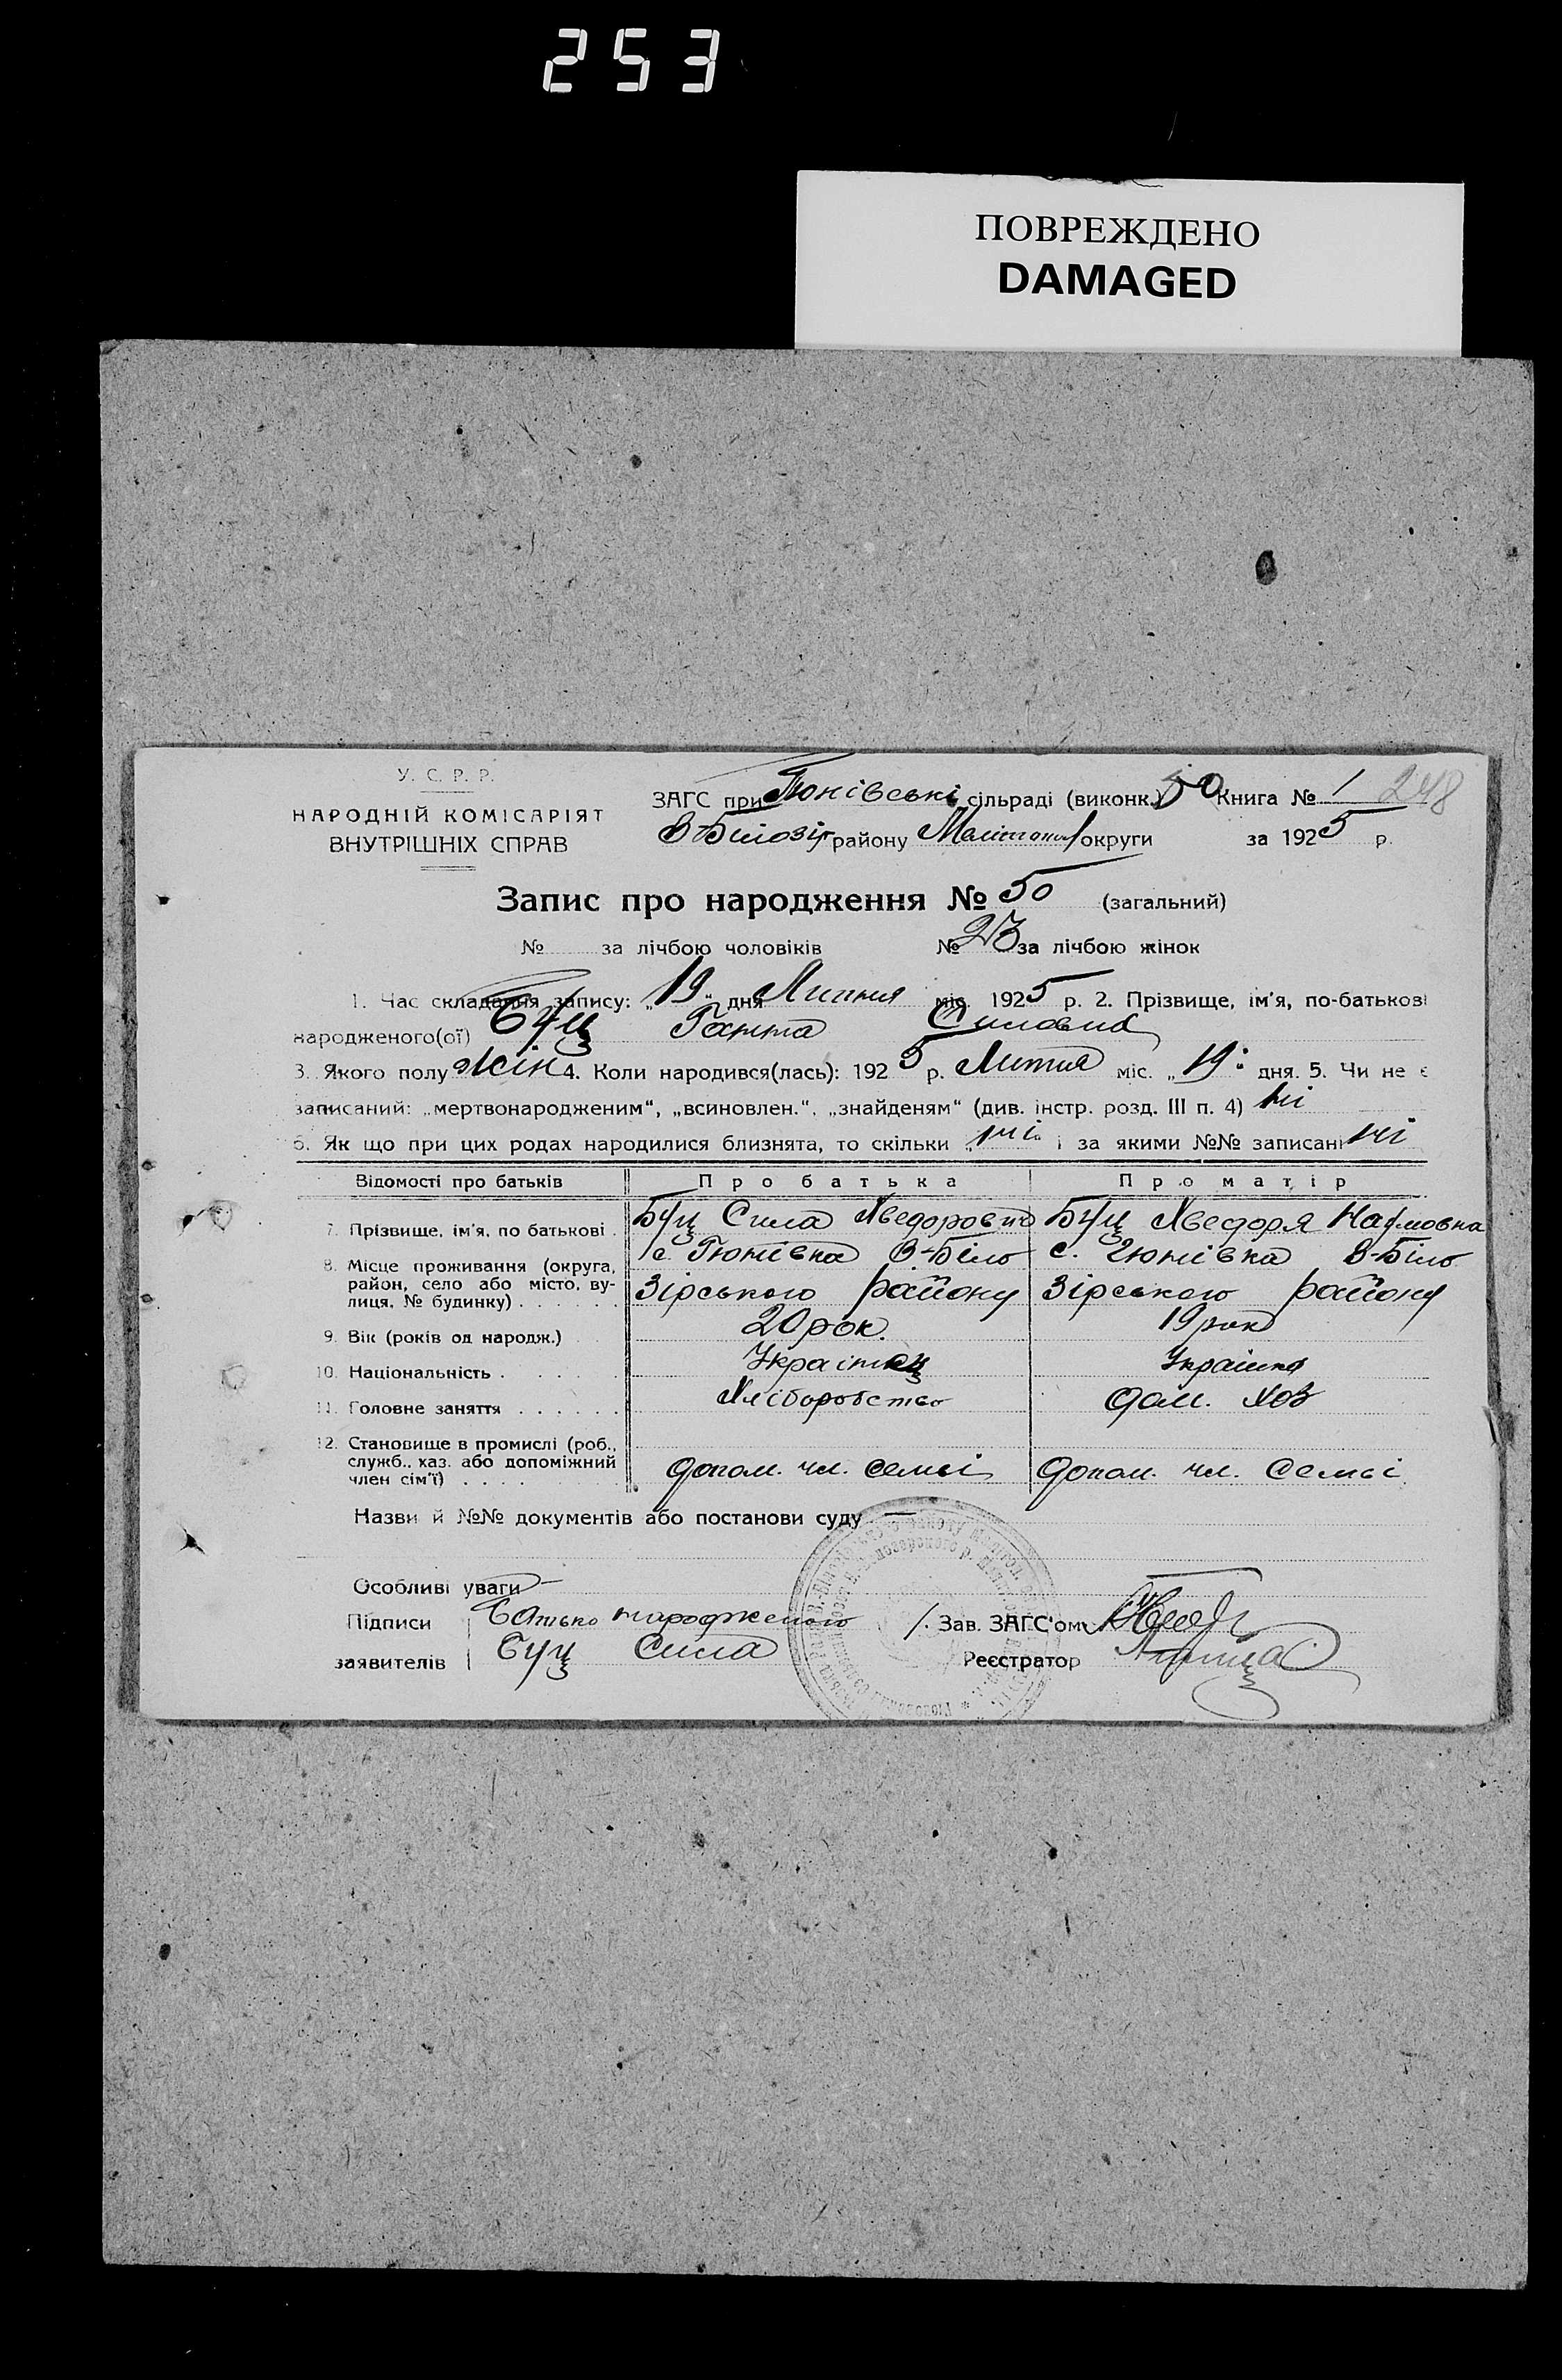 253
ПОВРЕЖДЕНО
DAMAGED
У. С. Р. Р.
НАРОДНІЙ КОМІСАРІЯТ
ВНУТРІШНІХ СПРАВ
ЗАГС при Гюнівські сільраді (виконк.) 50 Книга № 1 248
В-Білозір району Мелітопол округи за 1925 р.
Запис про народження № 50 (загальний)
№ за лічбою чоловіків № 23 за лічбою жінок
1. Час складання запису: „19“ дня Липня міс. 1925 р. 2. Прізвище, ім'я, по-батькові
народженого(ої) Буц Ганна Силовна
3. Якого полу жін 4. Коли народився(лась): 1925 р. Липня міс. „19“ дня. 5. Чи не є
записаний: „мертвонародженим“, „всиновлен.“, „знайденям“ (див. інстр. розд. III п. 4) ні
6. Як що при цих родах народилися близнята, то скільки „ні“ і за якими №№ записані ні
Відомості про батьків Про батька Про матір
7. Прізвище, ім'я, по батькові . Буц Сила Хведорович Буц Хведоря Наумовна
8. Місце проживання (округа, район, село або місто, вулиця, № будинку) . . . . . . с. Гюнівка В-Біло с. Гюнівка В-Біло
зірського району зірського району
9. Вік (років од народж.) 20 рок. 19 рок
10. Національність . . . . . Українец Українка
11. Головне заняття . . . . . . Хліборобство дом. хоз
12. Становище в промислі (роб., служб., каз. або допоміжний член сім'ї) . . . . допом. чл. семьі допом. чл. семьі
Назви й №№ документів або постанови суду —
Особливі уваги —
Підписи Батько народженого Зав. ЗАГС'ом
заявителів Буц Сила Реєстратор